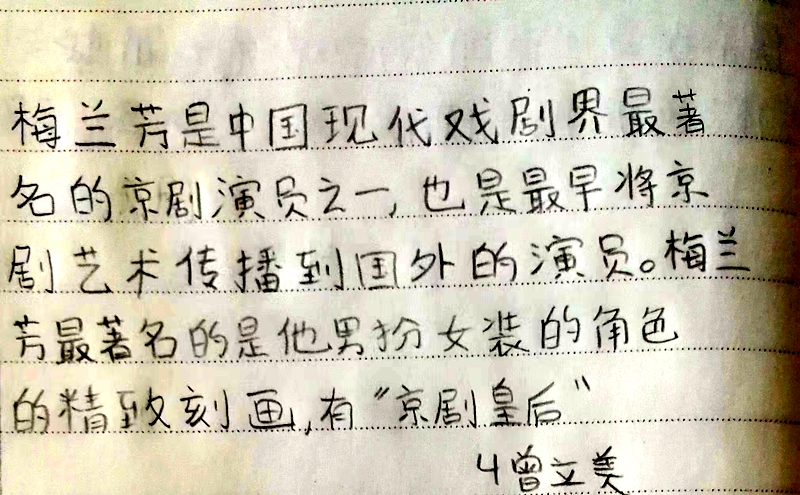 梅兰芳是中国现代戏剧界最著
名的京剧演员之一,也是最早将京
剧艺术传播到国外的演员。梅兰
芳最著名的是他男扮女装的角色
的精致刻画,有“京剧皇后”
4曾立美